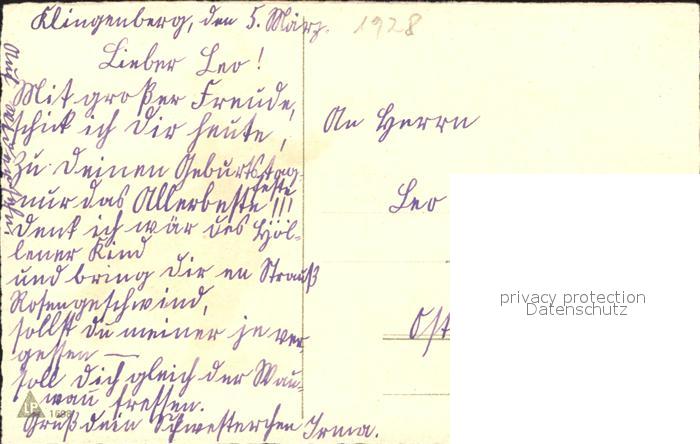 Klingenberg, den 5. März.
1928
Lieber Leo!
Mit großer Freude,
schick ich Dir heute,
Zu Deinen Geburtstag-
feste
nur das Allerbeste!!!
Denk ich wär des Höl-
lener Kind
und bring Dir en Strauß
Rosen geschwind,
sollst du meiner je ver-
gessen —
soll dich gleich der Wau-
wau fressen.
Gruß dein Schwesterchen Irma.
Auf
An Herrn
Leo
Ost
privacy protection
Datenschutz
LP
1698